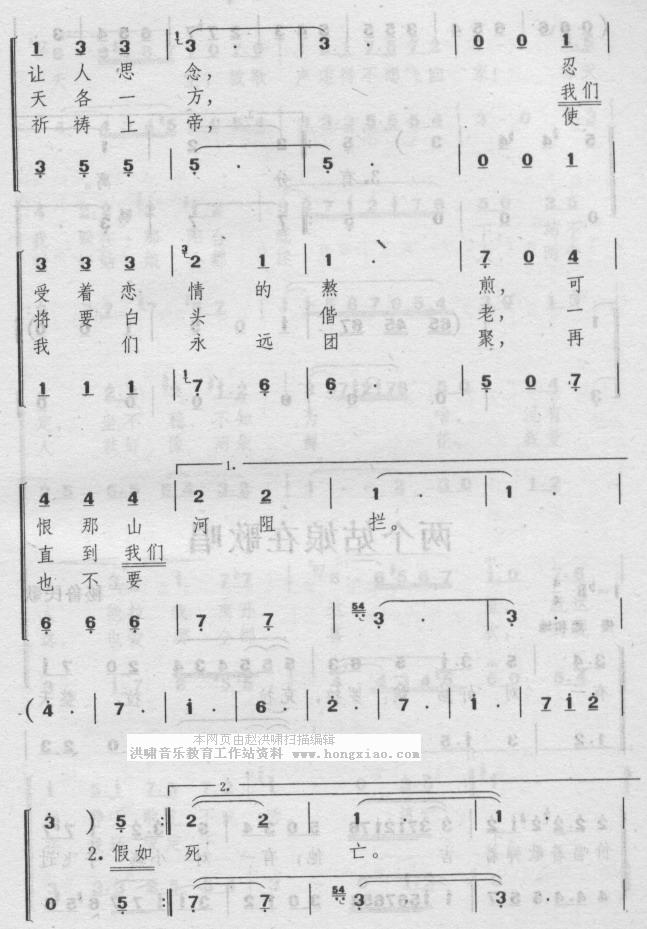 1 3 3 3 · 3 · 0 0 1
让 人 思 念， 忍
天 各 一 方， 我们
祈 祷 上 帝， 使
3 5 5 5 · 5 · 0 0 1
3 3 3 2 1 1 · 7 0 4
受 着 恋 情 的 熬 煎， 可
将 要 白 头 偕 老， 一
我 们 永 远 团 聚， 再
1 1 1 7 6 6 · 5 0 7
1.
4 4 4 2 2 1 · 1 ·
恨 那 山 河 阻 拦。
直 到 我们
也 不 要
6 6 6 7 7 54 3 · 3 ·
( 4 · 7 · i · 6 · 2 · 7 · i · 7 i 2
本网页由赵洪啸扫描编辑
洪啸音乐教育工作站资料 www.hongxiao.com
2.
3 ) 5 :‖ 2 2 1 · 1 ·
2. 假如 死 亡。
0 5 :‖ 7 7 54 3 · 3 ·